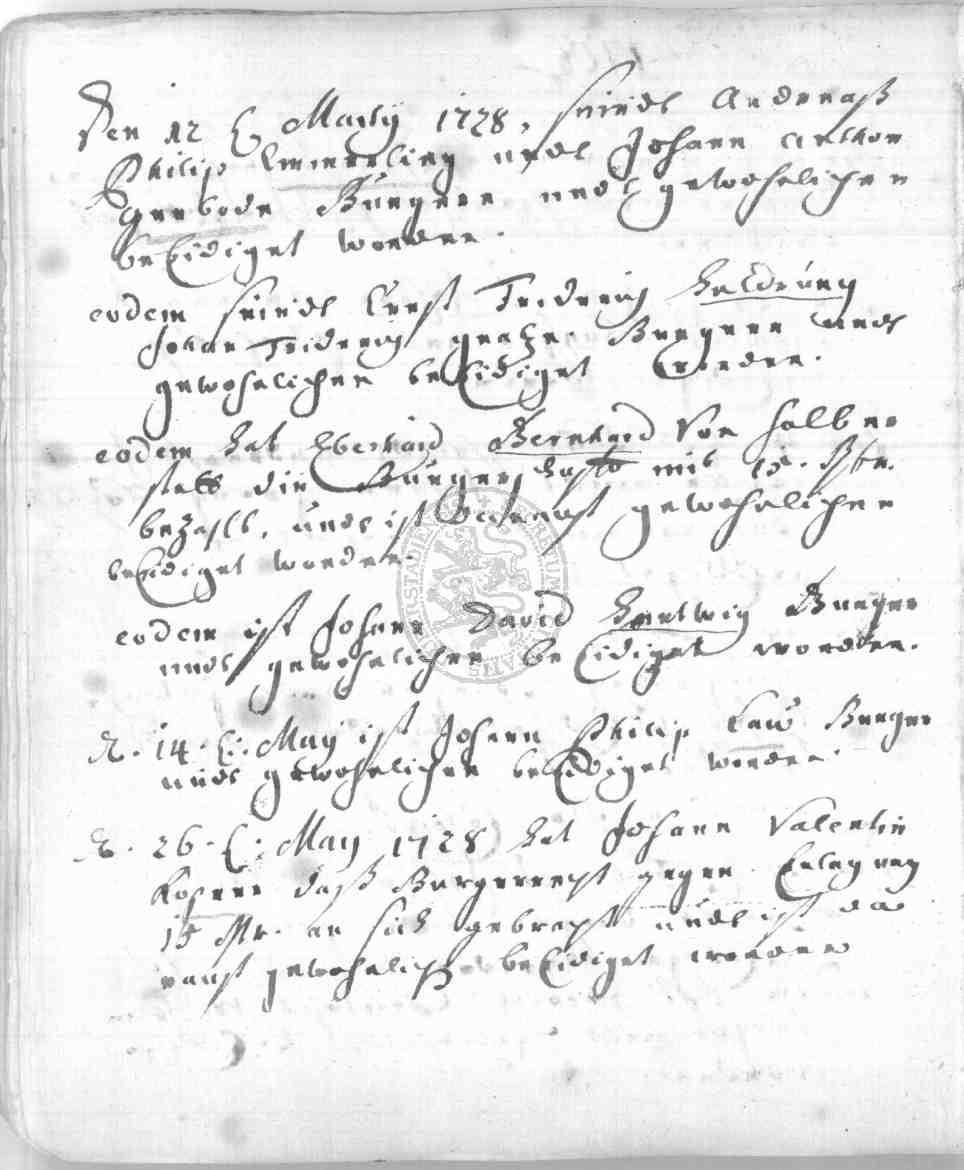 Den 12 t. Maijy 1728, seind Andreaß
Philip Emmerling und Johann Anthon
Gerbode Bürgere und gewohnlichen
beeidiget worden.
eodem seind Ernst Friderich Heldrung
Johan Friderich Bürgere und
gewohnlichen beeidiget worden.
eodem hat Eberhard Bernhard von Halber
statt die Bürgerschafft mit
bezahlt, und ist gewohnlichen
beeidiget worden.
eodem ist Johann David Hertwig Burger
und gewohnlichen beeidiget worden.
D. 14. t. Maij ist Johann Philip Law Burger
und gewohnlichen beeidiget worden
D. 26. t. Maij 1728 hat Johann Valentin
daß Burgerrecht gegen Erlegung
15 an sich gebracht und ist da
rauf gewohnlich beeidiget worden